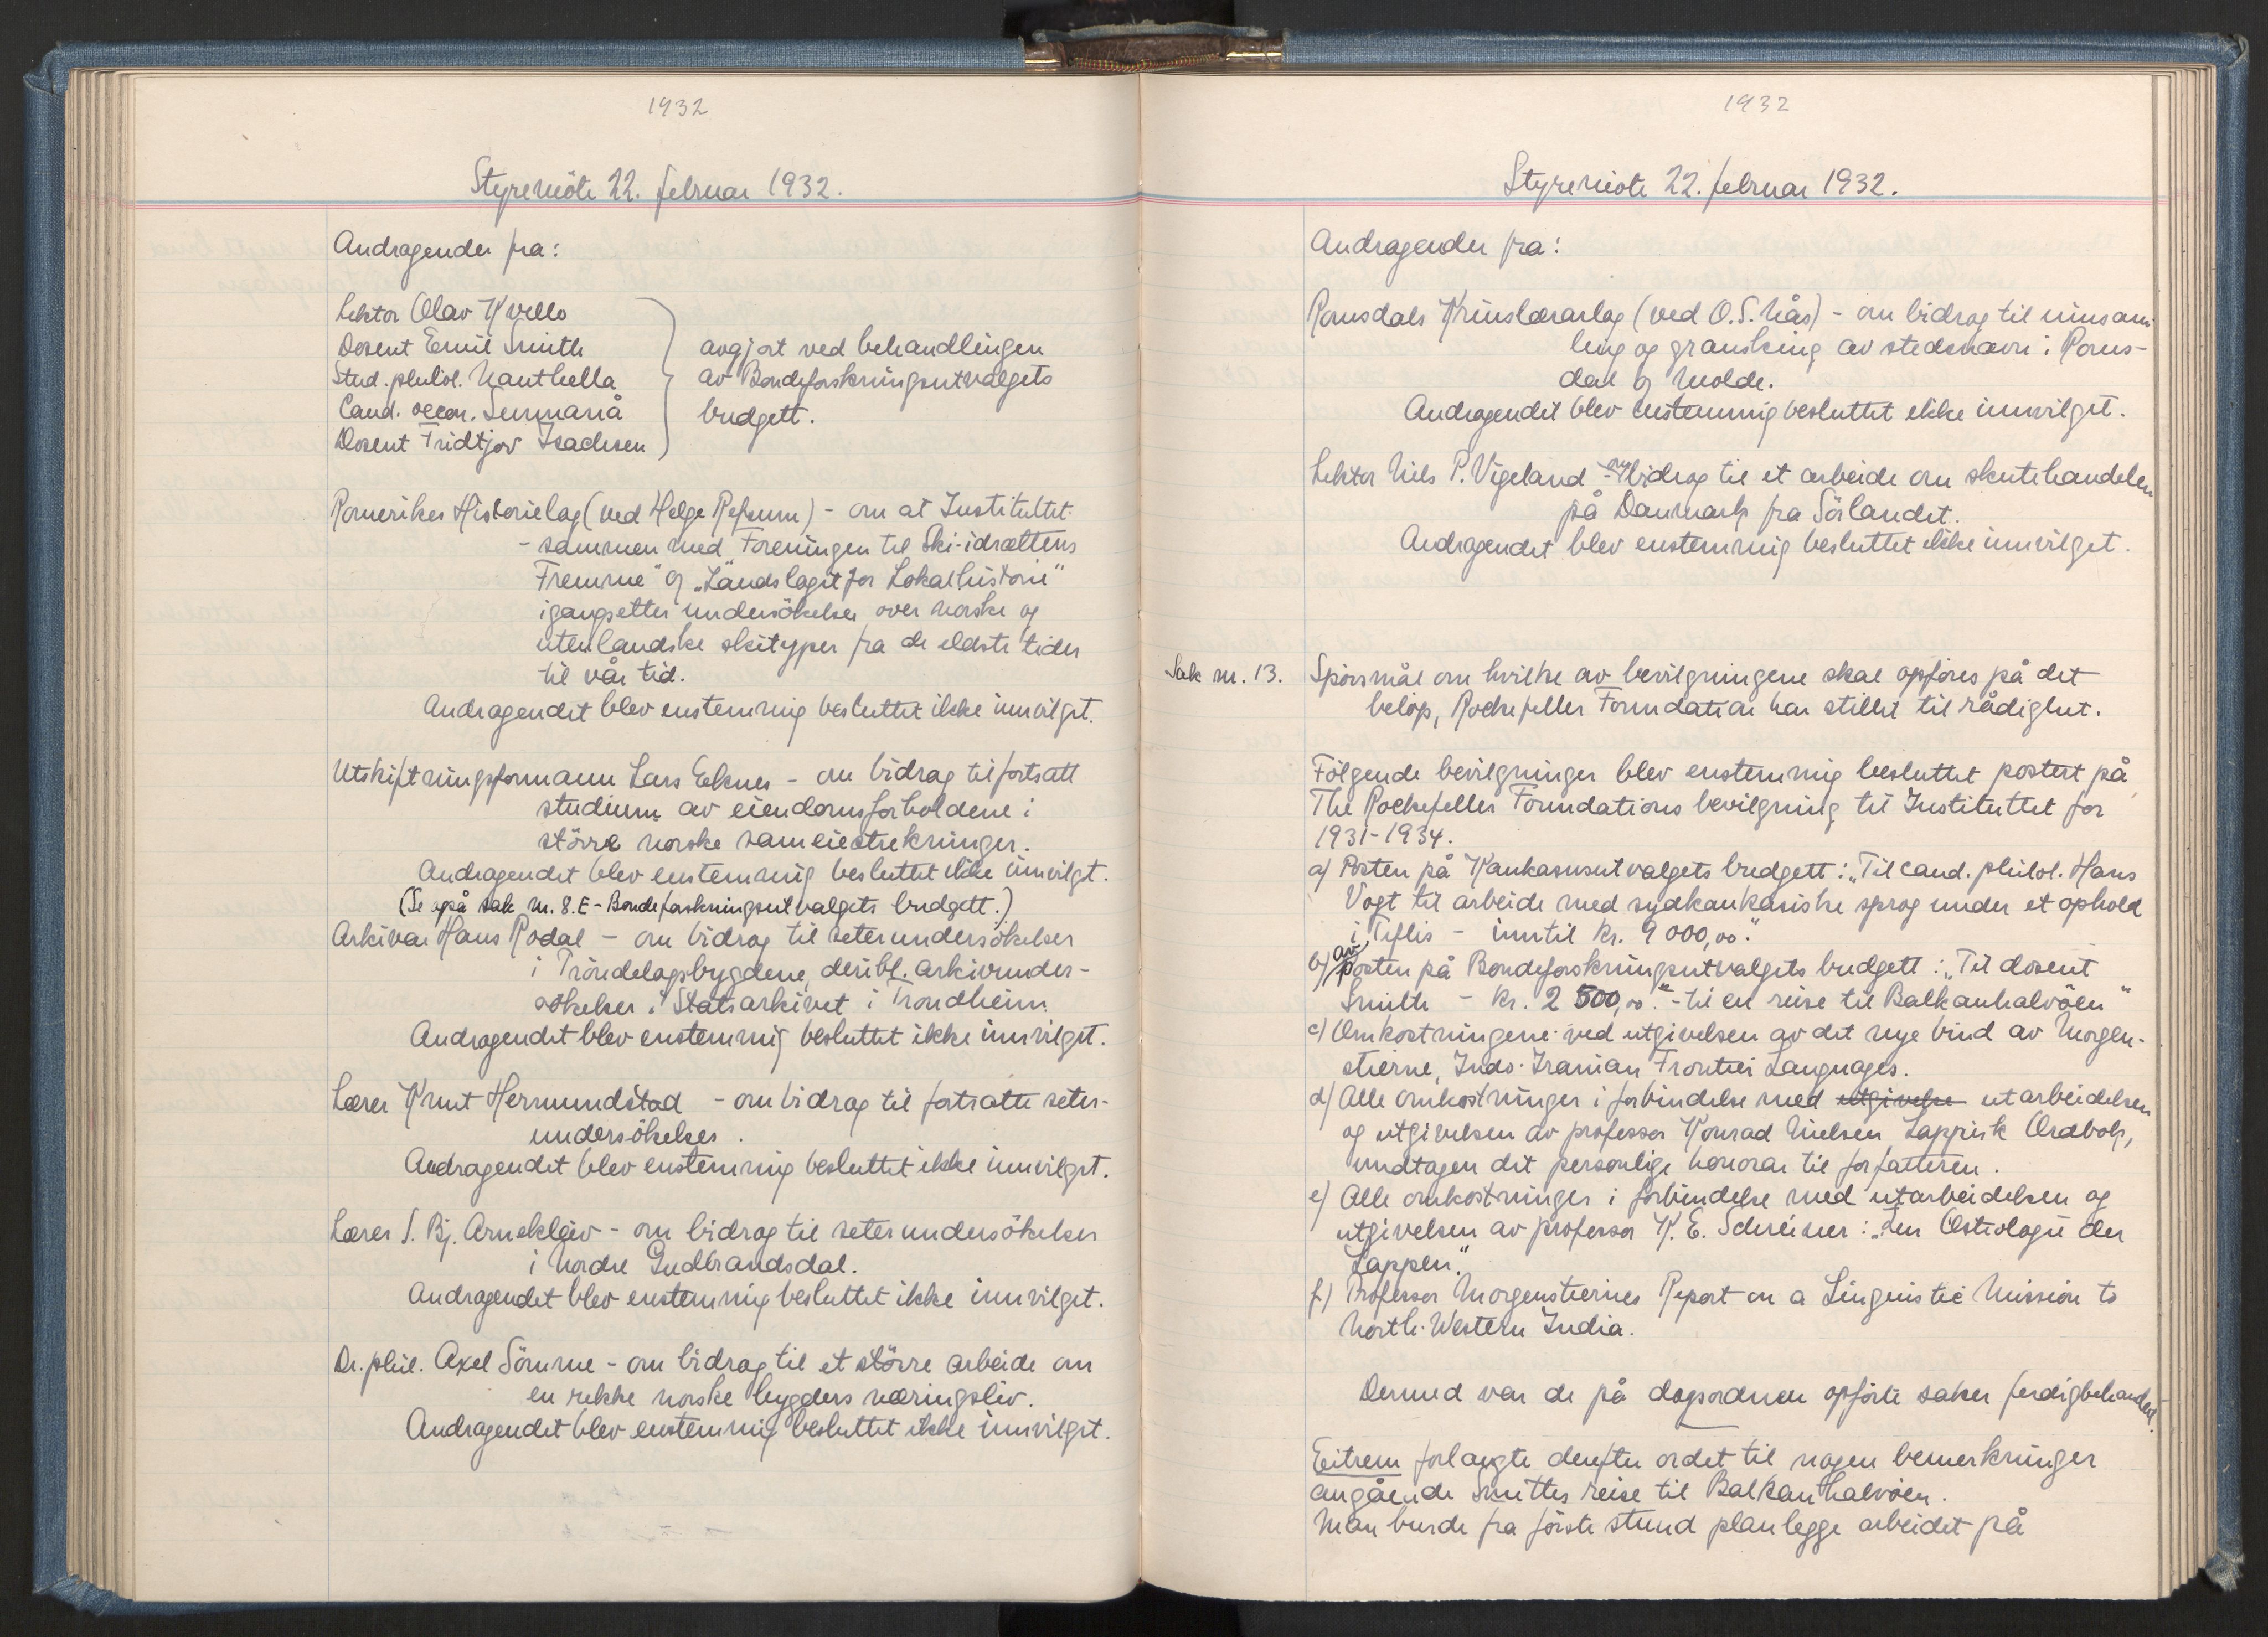 1932
Styremöte 22. februar 1932.
Andragender fra:
Lektor Olav Kvello
Dosent Emil Smith
Stud. philol.
Cand. oecon.
Dosent Fridtjov Isachsen
avgjort ved behandlingen
av Bondeforskningsutvalgets
budgett.
Romerikes Historielag (ved Helge Refsum) - om at Instituttet
- sammen med "Foreningen til Ski-idrættens
Fremme" og "Landslaget for Lokalhistorie"
igangsetter undersökelser over norske og
utenlandske skityper fra de eldste tider
til vår tid.
Andragendet blev enstemmig besluttet ikke innvilget.
Utskiftningsformann Lars Eknes - om bidrag til fortsatt
studium av eiendomsforholdene i
större norske sameiestrekninger.
Andragendet blev enstemmig besluttet ikke innvilget.
(Se også sak nr. 8.E - Bondeforskningsutvalgets budgett.)
Arkivar Hans Rodal - om bidrag til seterundersökelser
i Tröndelagsbygdene, deribl. arkivunder-
sökelser i Statsarkivet i Trondheim.
Andragendet blev enstemmig besluttet ikke innvilget.
Lærer Knut Hermundstad - om bidrag til fortsatte seter-
undersökelser.
Andragendet blev enstemmig besluttet ikke innvilget.
Lærer S. Bj. Arnekleiv - om bidrag til seterundersökelser
i Nordre Gudbrandsdal.
Andragendet blev enstemmig besluttet ikke innvilget.
Dr. phil. Axel Sömme - om bidrag til et större arbeide om
en rekke norske bygders næringsliv.
Andragendet blev enstemmig besluttet ikke innvilget.
1932
Styremöte 22. februar 1932.
Andragender fra:
Romsdals Krinslærarlag (ved O. S. Nås) - om bidrag til innsam-
ling og gransking av stedsnavn i Roms-
dal og Molde.
Andragendet blev enstemmig besluttet ikke innvilget.
Lektor Nils P. Vigeland - om bidrag til et arbeide om skutehandelen
på Danmark fra Sörlandet.
Andragendet blev enstemmig besluttet ikke innvilget.
Sak nr. 13. Spörsmål om hvilke av bevilgningene skal opföres på det
belöp, Rockefeller Foundation har stillet til rådighet.
Fölgende bevilgninger blev enstemmig besluttet postert på
The Rockefeller Foundations bevilgning til Instituttet for
1931-1934.
a) Posten på Kaukasusutvalgets budgett: "Til cand. philol. Hans
Vogt til arbeide med sydkaukasiske sprog under et ophold
i Tiflis - inntil kr. 9 000,00."
b) av Posten på Bondeforskningsutvalgets budgett: "Til dosent
Smith - kr. 2 500,00." - til en reise til Balkanhalvöen"
c) Omkostningene ved utgivelsen av det nye bind av Morgen-
stierne, Indo-Iranian Frontier Languages.
d) Alle omkostninger i forbindelse med utgivelse utarbeidelsen
og utgivelsen av professor Konrad Nielsen, Lappisk Ordbok,
undtagen det personlige honorar til forfatteren.
e) Alle omkostninger i forbindelse med utarbeidelsen og
utgivelsen av professor K. E. Schreiner: "Zur Osteologie der
Lappen."
f) Professor Morgenstiernes Report on a Linguistic Mission to
North-Western India.
Dermed var de på dagsordnen opförte saker ferdigbehandlet.
Eitrem forlangte derefter ordet til nogen bemerkninger
angående Smiths reise til Balkanhalvöen.
Man burde fra förste stund planlegge arbeidet på